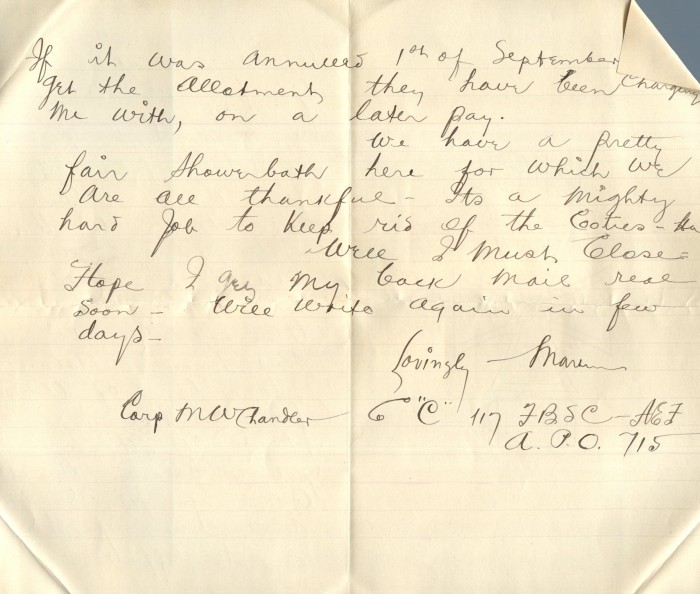 If it was annulled 1st of September
get the allotments they have been charging
me with, on a later pay.
We have a pretty
fair showerbath here for which we
are all thankful - Its a mighty
hard job to keep rid of the Coties - Ha
Well I must close =
Hope I get my back mail real
soon - Will write again in few
days -
Lovingly -
Corp M W Chandler Co "C" 117 F B S C - AEF
A. P. O. 715